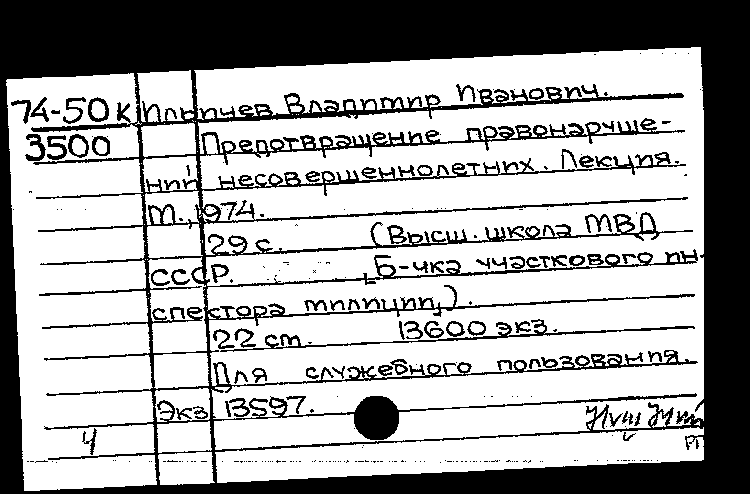 74-50к Ильичев Владимир Иванович.
3500 Предотвращение правонаруше-
ний несовершеннолетних. Лекция.
М., 1974.
29 с. (Высш. школа МВД
СССР. "Б-чка участкового ин-
спектора милиции").
22 cm. 13600 экз.
Для служебного пользования.
Экз 13597.
4